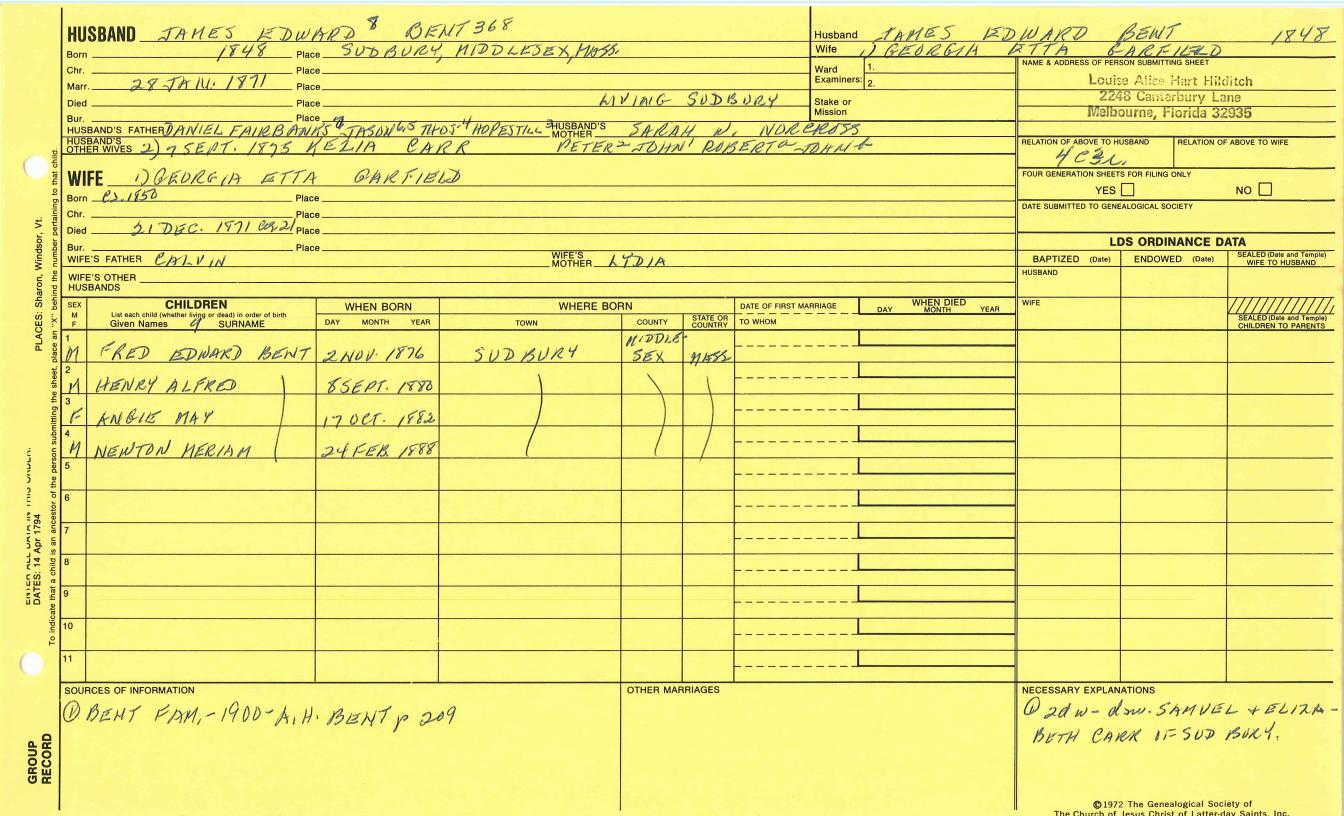 HUSBAND JAMES EDWARD 8 BENT 368
Born 1848 Place SUDBURY, MIDDLESEX, MASS.
Chr. Place
Marr. 28 JAN. 1871 Place
Died Place LIVING SUDBURY
Bur. Place
HUSBAND'S FATHER DANIEL FAIRBANKS 7 JASON 6,5 THOS. 4 HOPESTILL 3 HUSBAND'S MOTHER SARAH N. NORCROSS
HUSBAND'S OTHER WIVES 2) 7 SEPT. 1875 KELIA CARR PETER 2 JOHN 1 ROBERT a JOHN b
Husband JAMES EDWARD BENT 1848
Wife 1) GEORGIA ETTA GARFIELD
Ward Examiners: 1.
2.
Stake or Mission
NAME & ADDRESS OF PERSON SUBMITTING SHEET
Louise Alice Hart Hilditch
2248 Canterbury Lane
Melbourne, Florida 32935
RELATION OF ABOVE TO HUSBAND RELATION OF ABOVE TO WIFE
4C3r.
FOUR GENERATION SHEETS FOR FILING ONLY
YES NO
DATE SUBMITTED TO GENEALOGICAL SOCIETY
WIFE 1) GEORGIA ETTA GARFIELD
Born ca. 1850 Place
Chr. Place
Died 21 DEC. 1871 age 21 Place
Bur. Place
WIFE'S FATHER CALVIN WIFE'S MOTHER LYDIA
WIFE'S OTHER HUSBANDS
LDS ORDINANCE DATA
BAPTIZED (Date) ENDOWED (Date) SEALED (Date and Temple) WIFE TO HUSBAND
HUSBAND
WIFE
SEALED (Date and Temple) CHILDREN TO PARENTS
SEX M F CHILDREN WHEN BORN WHERE BORN DATE OF FIRST MARRIAGE WHEN DIED
List each child (whether living or dead) in order of birth
Given Names 9 SURNAME DAY MONTH YEAR TOWN COUNTY STATE OR COUNTRY TO WHOM DAY MONTH YEAR
1 M FRED EDWARD BENT 2 NOV. 1876 SUDBURY MIDDLE-SEX MASS
2 M HENRY ALFRED 8 SEPT. 1880
3 F ANGIE MAY 17 OCT. 1882
4 M NEWTON MERIAM 24 FEB. 1888
5
6
7
8
9
10
11
SOURCES OF INFORMATION
① BENT FAM.-1900-A.H. BENT p 209
OTHER MARRIAGES
NECESSARY EXPLANATIONS
① 2d w - dau. SAMUEL + ELIZA-
BETH CARR OF SUDBURY.
©1972 The Genealogical Society of
The Church of Jesus Christ of Latter-day Saints, Inc.
GROUP RECORD
ENTER ALL DATA IN THIS ORDER:
DATES: 14 Apr 1794
PLACES: Sharon, Windsor, Vt.
To indicate that a child is an ancestor of the person submitting the sheet, place an "X" behind the number pertaining to that child.